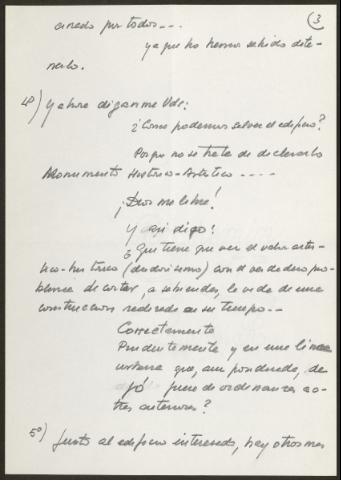 3
creado por todos...
ya que no hemos sabido dete-
nerlo.
4º) Y ahora díganme Vds:
¿Como podemos salvar el edificio?
Porque no se trata de declararlo
Monumento Histórico-Artístico ----
¡Dios me libre!
Y aqui digo:
¿Que tiene que ver el valor artis-
tico-historico (dudosisimo) con el verdadero pro-
blema de cortar, a sabiendas, la vida de una
construccion realizada en su tiempo --
Correctamente
Prudentemente y en una linea
urbana que, aun ponderada, de-
jó fuera de ordenanzas
anteriores?
5º) Junto al edificio interesado, hay otros mas